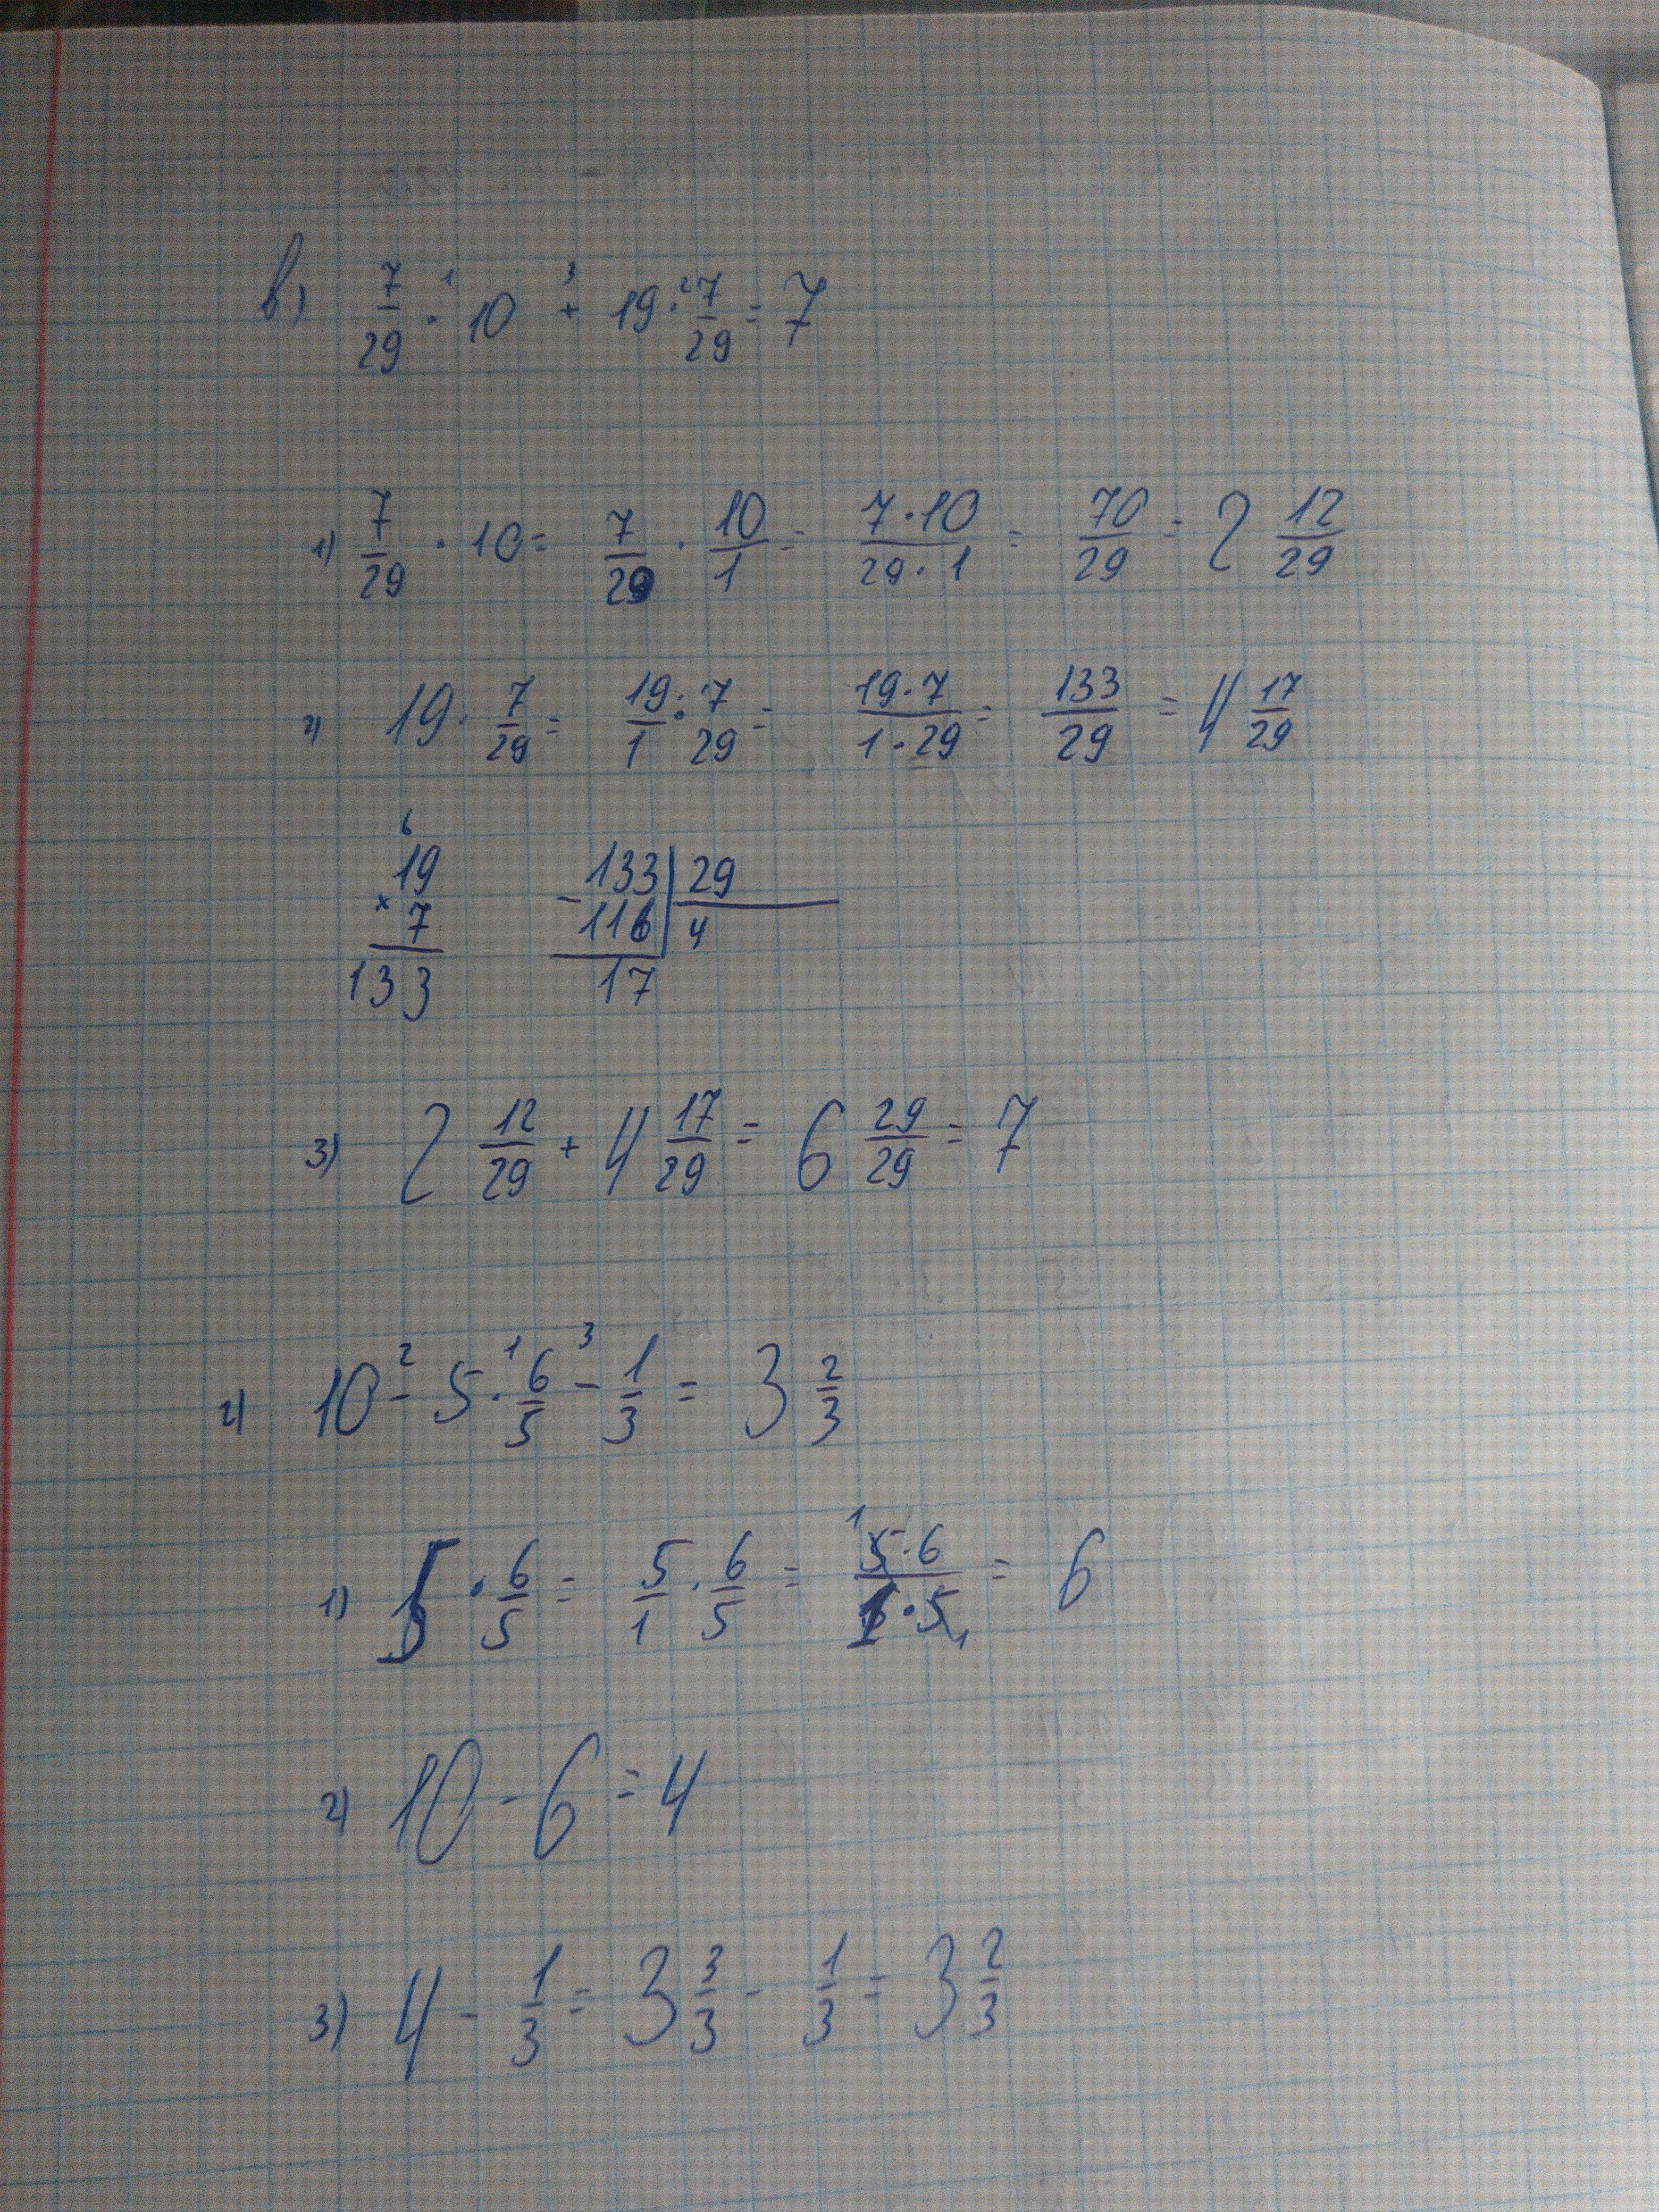 в) 7/29 ·¹ 10 +³ 19 ·² 7/29 = 7
1) 7/29 · 10 = 7/29 · 10/1 = 7·10/29·1 = 70/29 = 2 12/29
2) 19 · 7/29 = 19/1 · 7/29 = 19·7/1·29 = 133/29 = 4 17/29
6
19 - 133 | 29
× 7 116 | 4
133 17
3) 2 12/29 + 4 17/29 = 6 29/29 = 7
г) 10 -² 5 ·¹ 6/5 -³ 1/3 = 3 2/3
1) 5 · 6/5 = 5/1 · 6/5 = ¹5·6/1·5₁ = 6
2) 10 - 6 = 4
3) 4 - 1/3 = 3 3/3 - 1/3 = 3 2/3